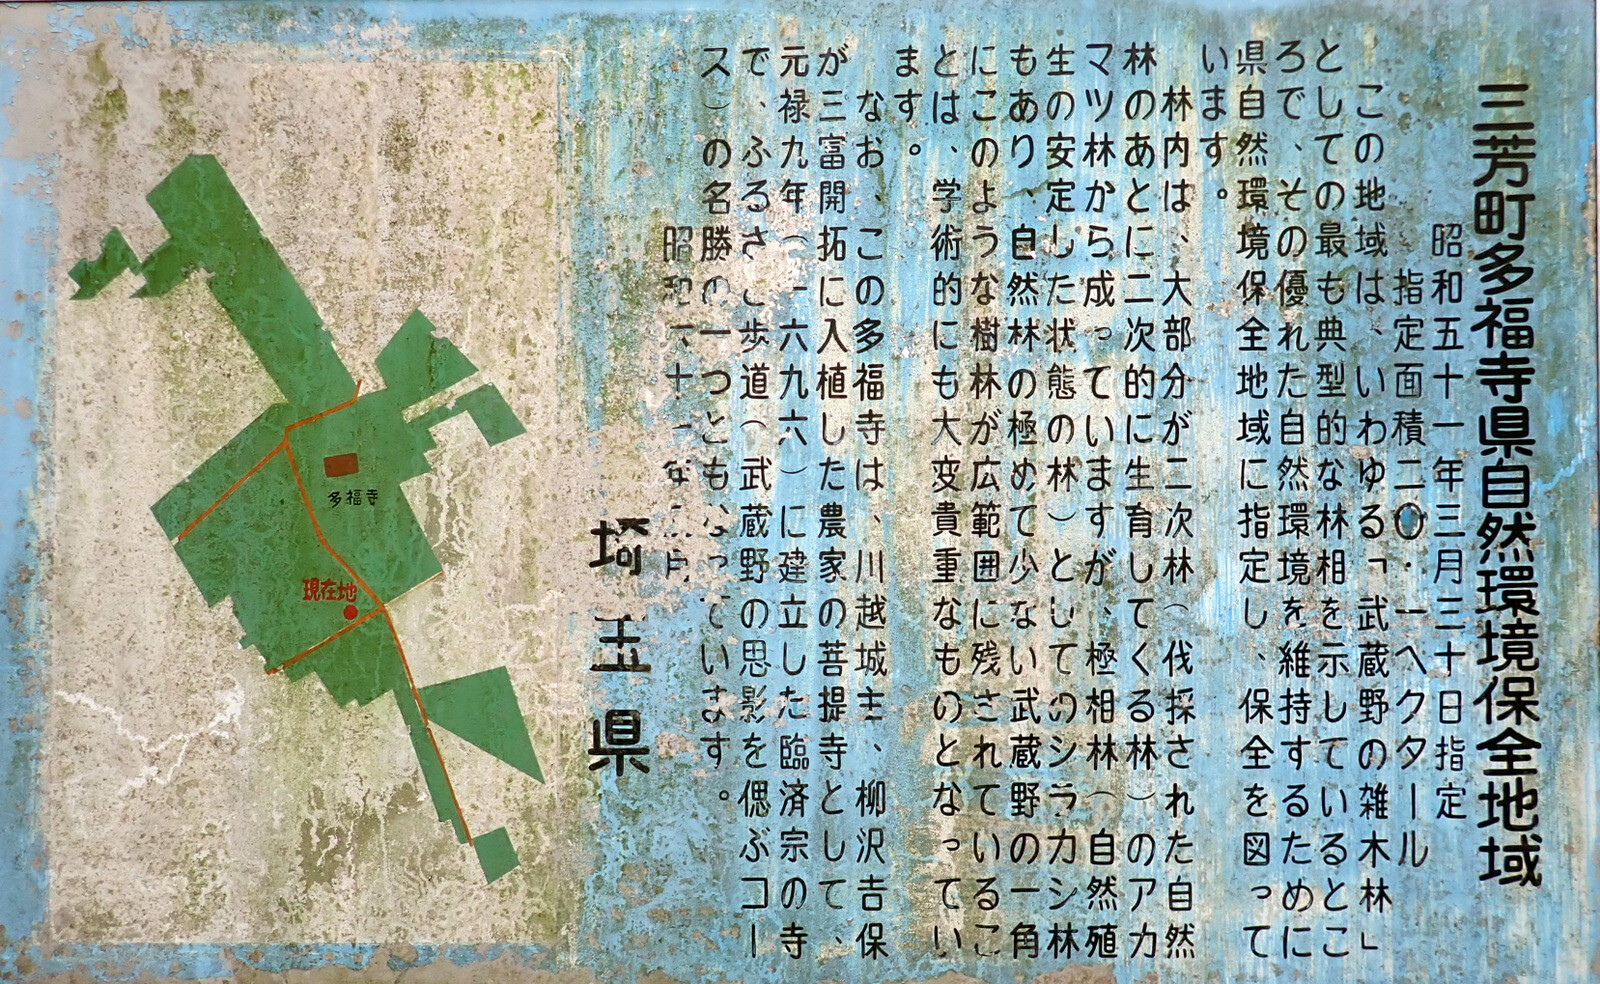 三芳町多福寺県自然環境保全地域
昭和五十一年三月三十日指定
指定面積二〇・一ヘクタール
この地域は、いわゆる「武蔵野の雑木林」
としての最も典型的な林相を示しているとこ
ろで、その優れた自然環境を維持するために
県自然環境保全地域に指定し、保全を図って
います。
林内は、大部分が二次林（伐採された自然
林のあとに二次的に生育してくる林）のアカ
マツ林から成っていますが、極相林（自然殖
生の安定した状態の林）としてのシラカシ林
もあり、自然林の極めて少ない武蔵野の一角
にこのような樹林が広範囲に残されているこ
とは、学術的にも大変貴重なものとなってい
ます。
なお、この多福寺は、川越城主、柳沢吉保
が三富開拓に入植した農家の菩提寺として、
元禄九年（一六九六）に建立した臨済宗の寺
で、ふるさと歩道（武蔵野の思影を偲ぶコー
ス）の名勝の一つともなっています。
昭和 十 年 月
埼玉県
多福寺
現在地